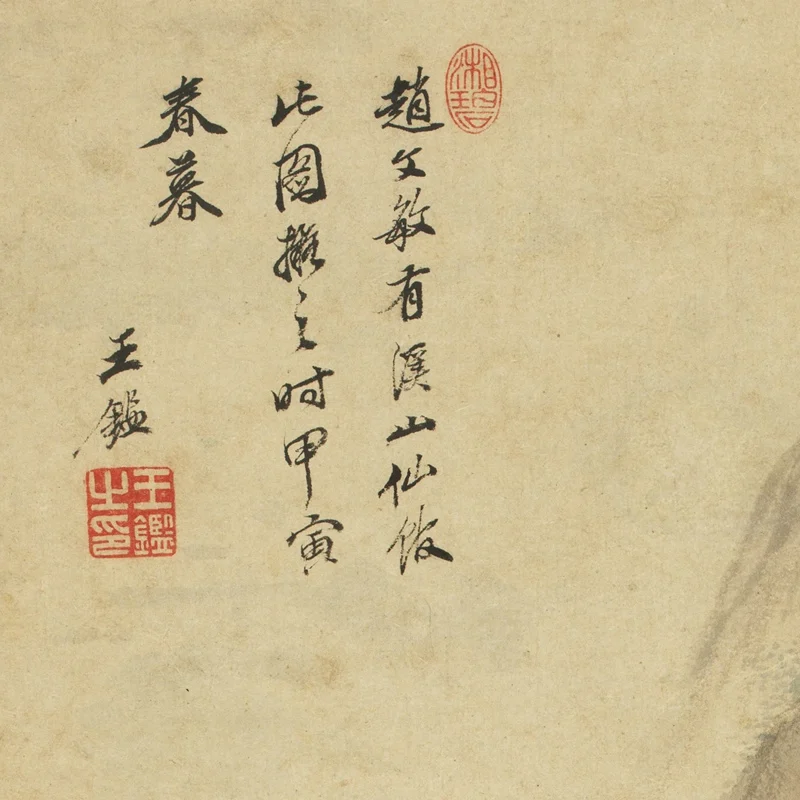 湘碧
趙文敏有溪山仙館
此圖擬之時甲寅
春暮
王鑑
王鑑之印